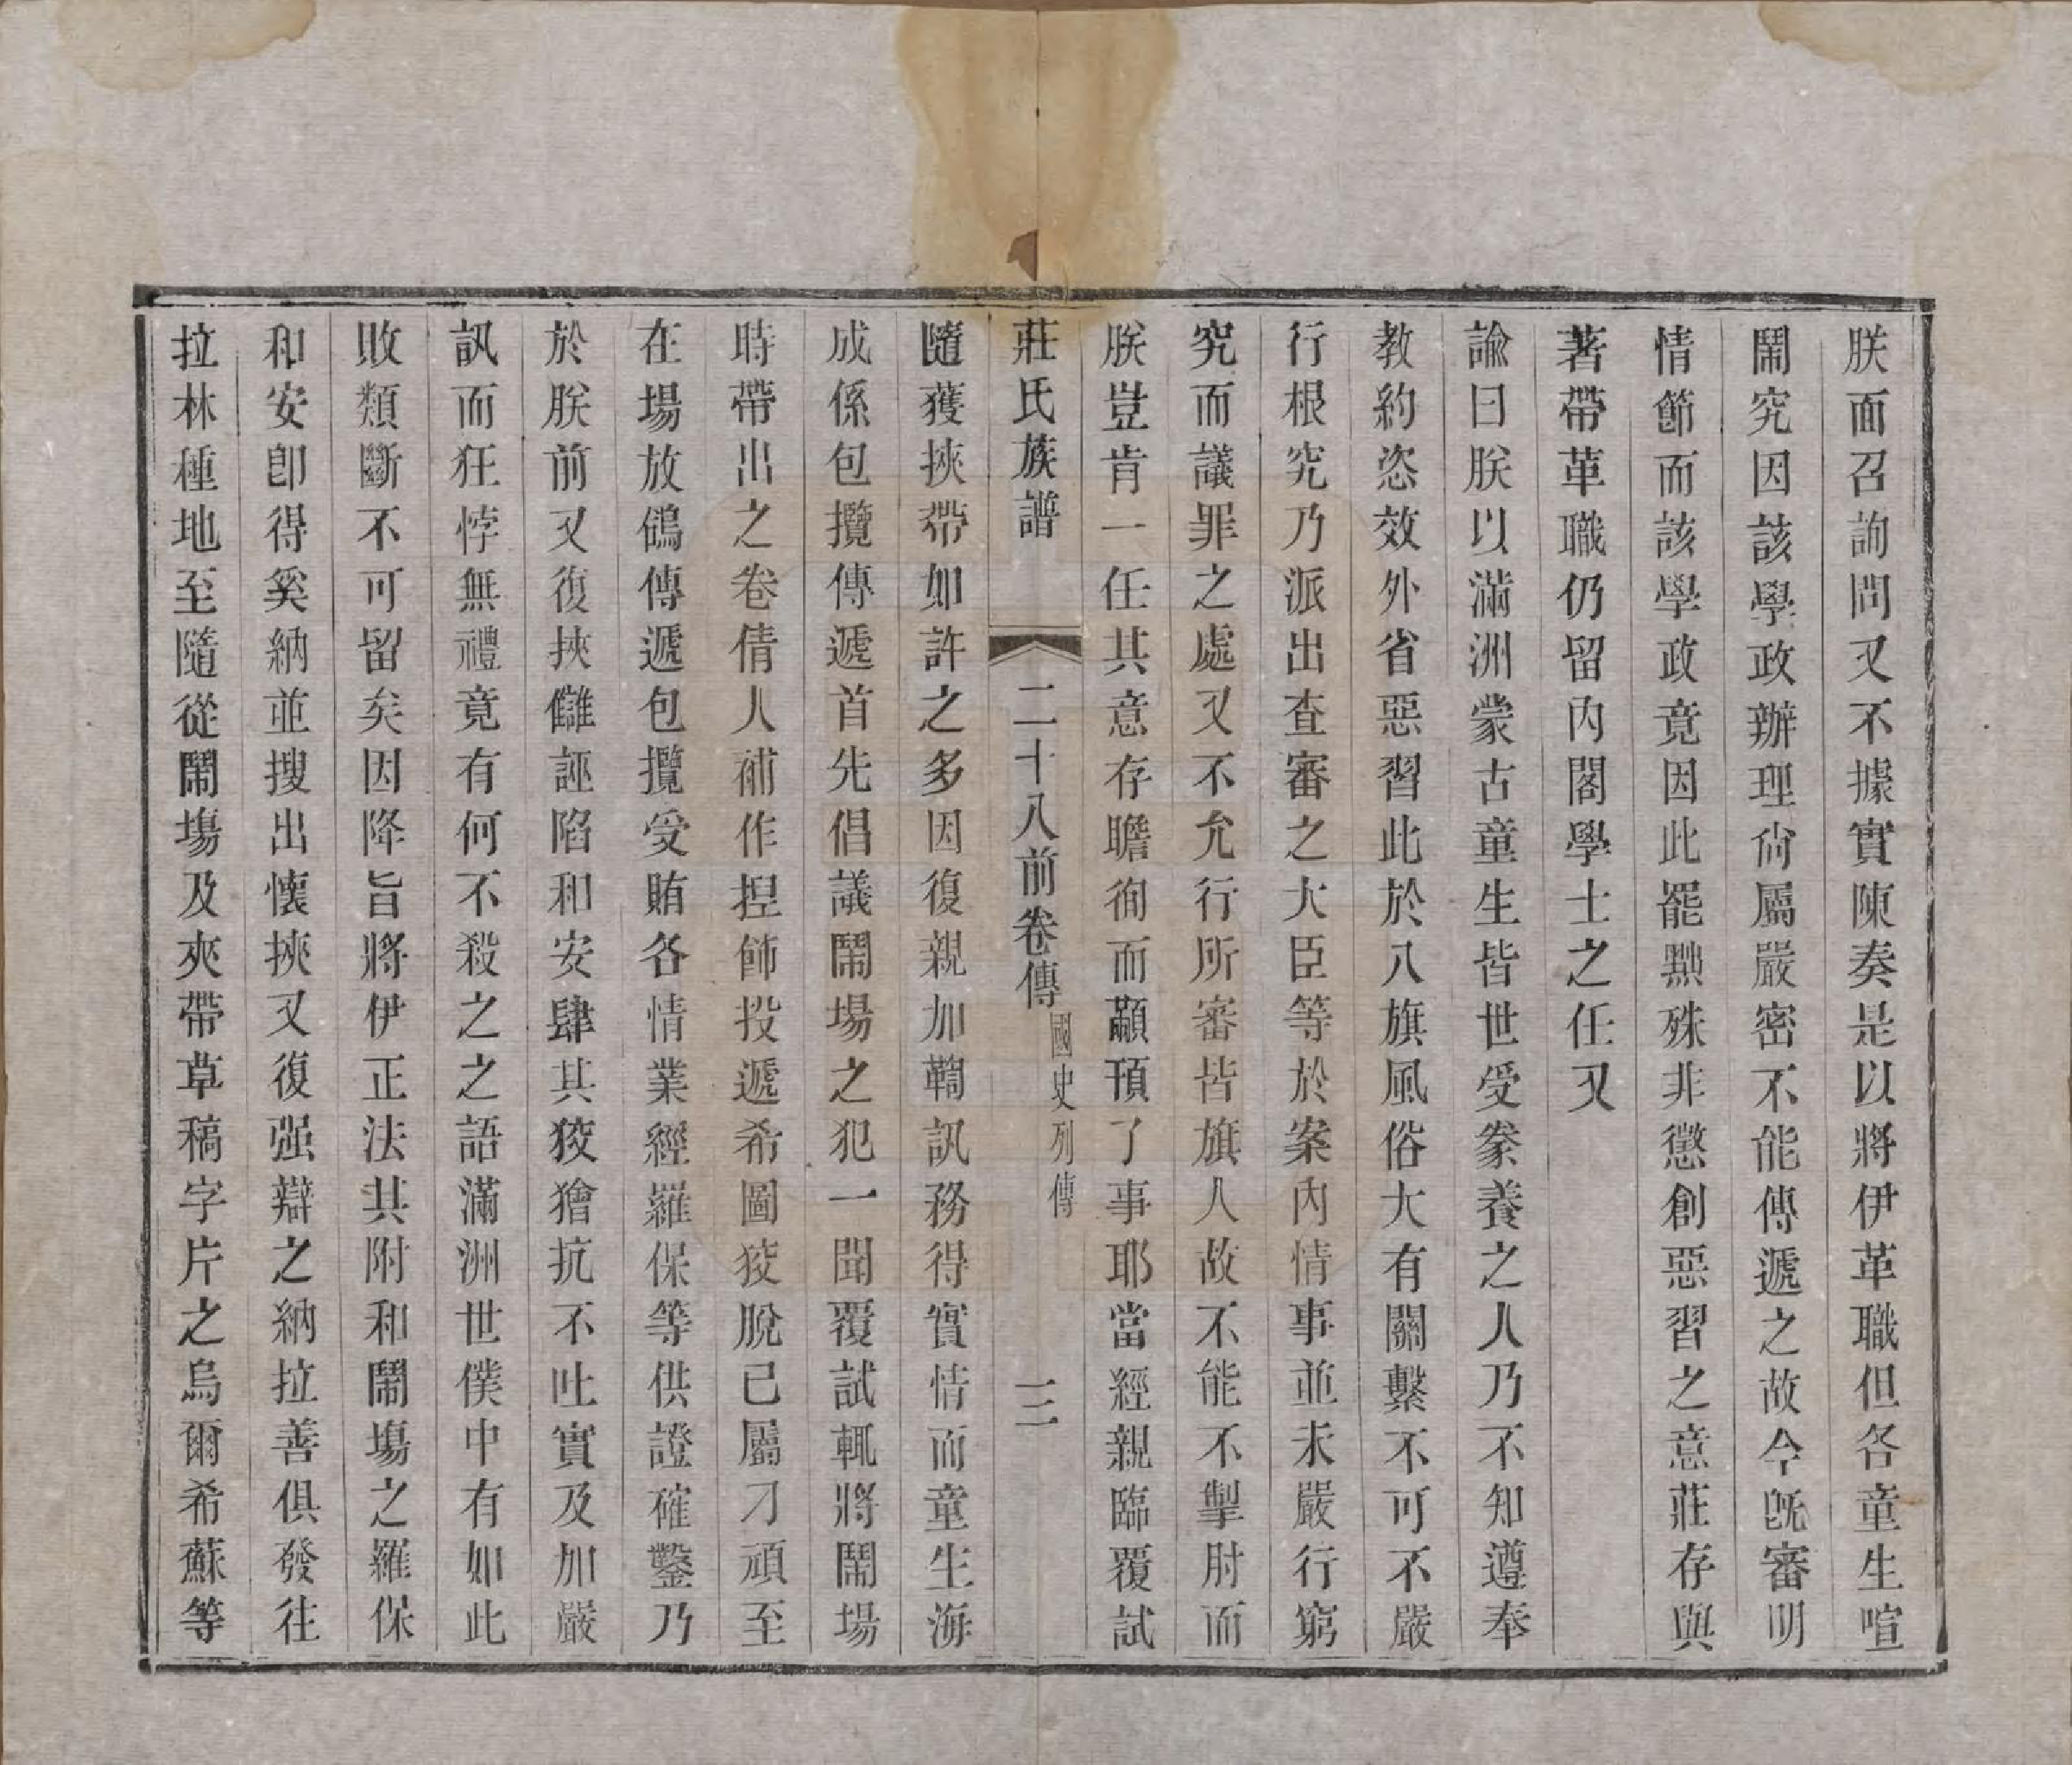 朕面召詢問又不據實陳奏是以將伊革職但各童生喧
鬧究因該學政辦理尙屬嚴密不能傳遞之故今既審明
情節而該學政竟因此罷黜殊非懲創惡習之意莊存與
著帶革職仍留內閣學士之任又
諭曰朕以滿洲蒙古童生皆世受豢養之人乃不知遵奉
教約恣效外省惡習此於八旗風俗大有關繫不可不嚴
行根究乃派出查審之大臣等於案內情事並未嚴行窮
究而議罪之處又不允行所審皆旗人故不能不掣肘而
朕豈肯一任其意存瞻徇而顢頇了事耶當經親臨覆試
莊氏族譜 二十八前卷傳 國史列傳 三
隨獲挾帶如許之多因復親加鞫訊務得實情而童生海
成係包攬傳遞首先倡議鬧場之犯一聞覆試輒將鬧場
時帶出之卷倩人補作捏飾投遞希圖狡脫已屬刁頑至
在場放鴿傳遞包攬受賄各情業經羅保等供證確鑿乃
於朕前又復挾讎誣陷和安肆其狡獪抗不吐實及加嚴
訊而狂悖無禮竟有何不殺之之語滿洲世僕中有如此
敗類斷不可留矣因降旨將伊正法其附和鬧塲之羅保
和安卽得奚納並搜出懷挾又復强辯之納拉善俱發往
拉林種地至隨從鬧塲及夾帶草稿字片之烏爾希蘇等